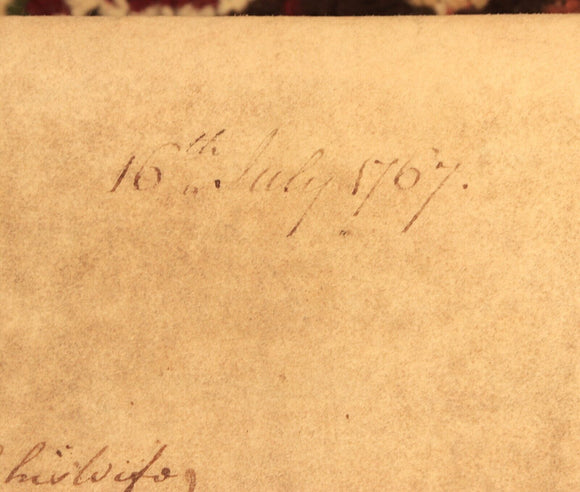 16th July 1767.
his Wife,